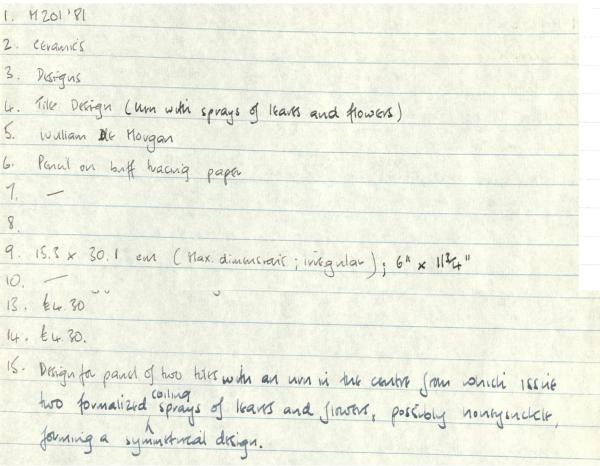 1. M201'81
2. Ceramics
3. Designs
4. Tile Design (urn with sprays of leaves and flowers)
5. William De Morgan
6. Pencil on buff tracing paper
7. —
8.
9. 15.3 x 30.1 cm (Max. dimensions; irregular); 6" x 11¾"
10. —
13. £4.30
14. £4.30.
15. Design for panel of two tiles with an urn in the centre from which issue
two formalized coiling sprays of leaves and flowers, possibly honeysuckle,
forming a symmetrical design.